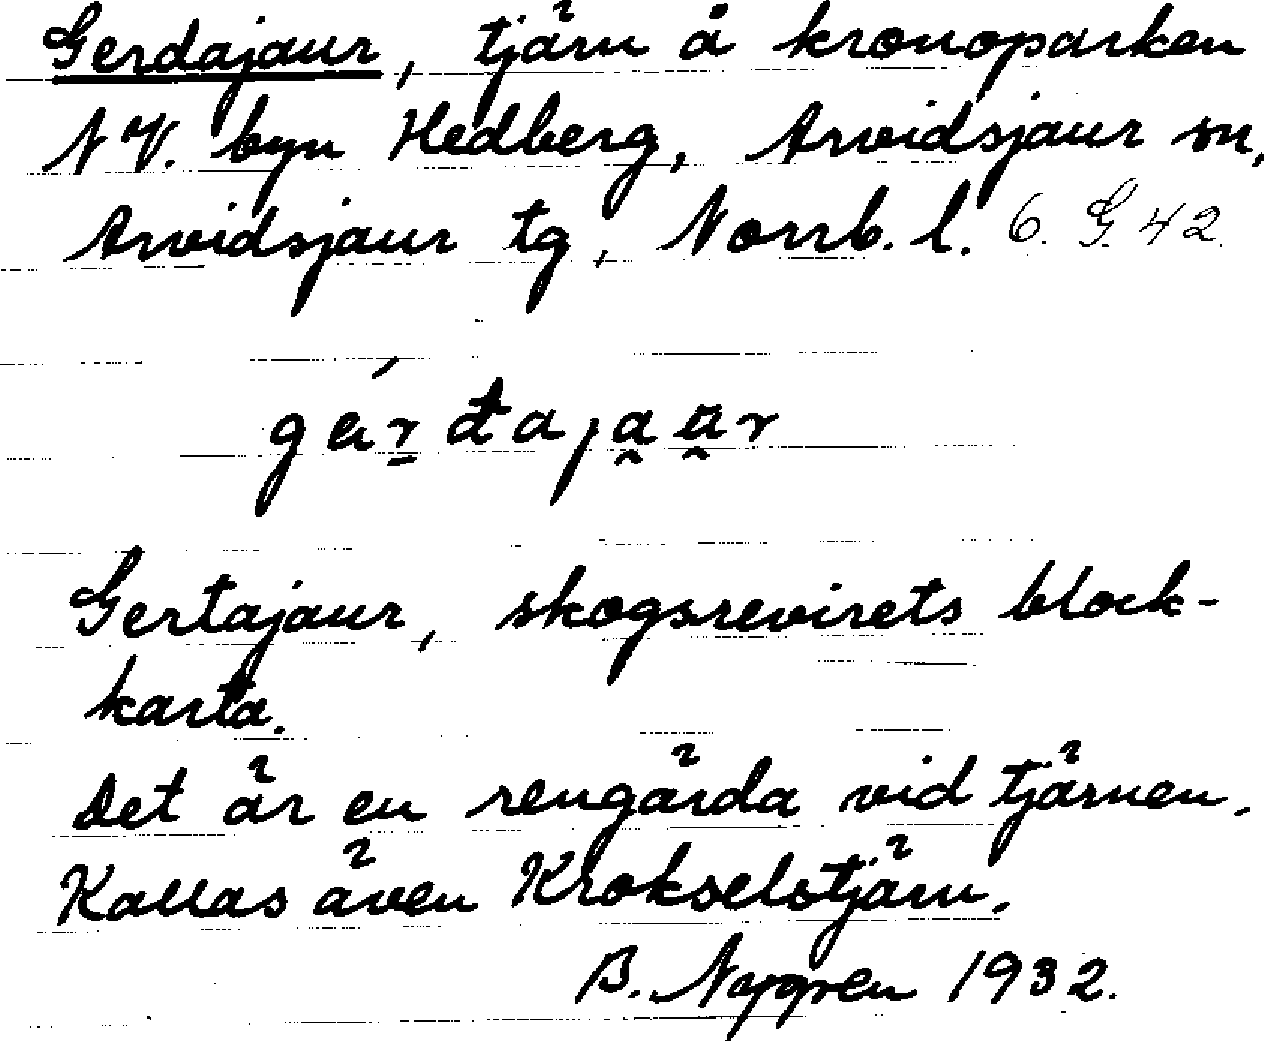 Gerdajaur, tjärn å kronoparken
NV. byn Hedberg, Arvidsjaur sn,
Arvidsjaur tg, Norrb. l. 6. G. 42.
Gertajaur, skogsrevirets block-
karta.
Det är en rengärda vid tjärnen.
Kallas även Krokselstjärn.
B. Nygren 1932.